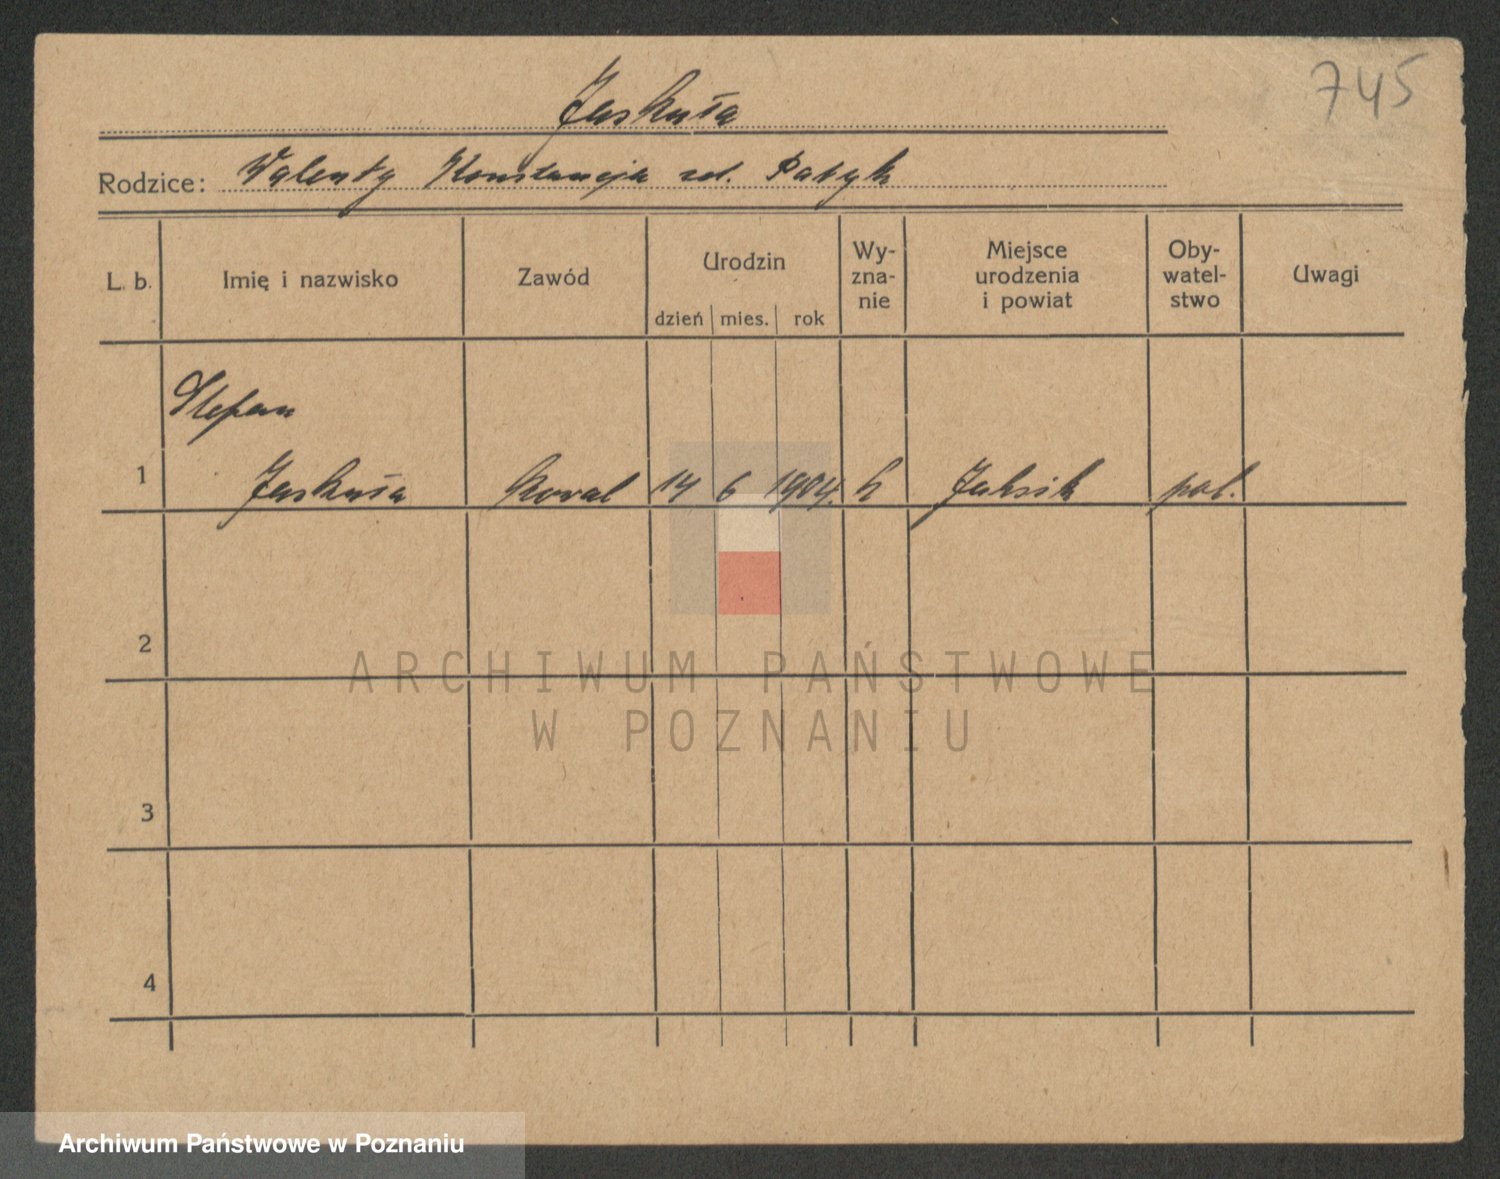 745
Jaskuła
Rodzice: Walenty Konstancja zd. Patyk
L. b. Imię i nazwisko Zawód Urodzin dzień mies. rok Wy-zna-nie Miejsce urodzenia i powiat Oby-watel-stwo Uwagi
Stefan
1 Jaskuła 14 6 1904. k pol.
2
ARCHIWUM PAŃSTWOWE
W POZNANIU
3
4
Archiwum Państwowe w Poznaniu